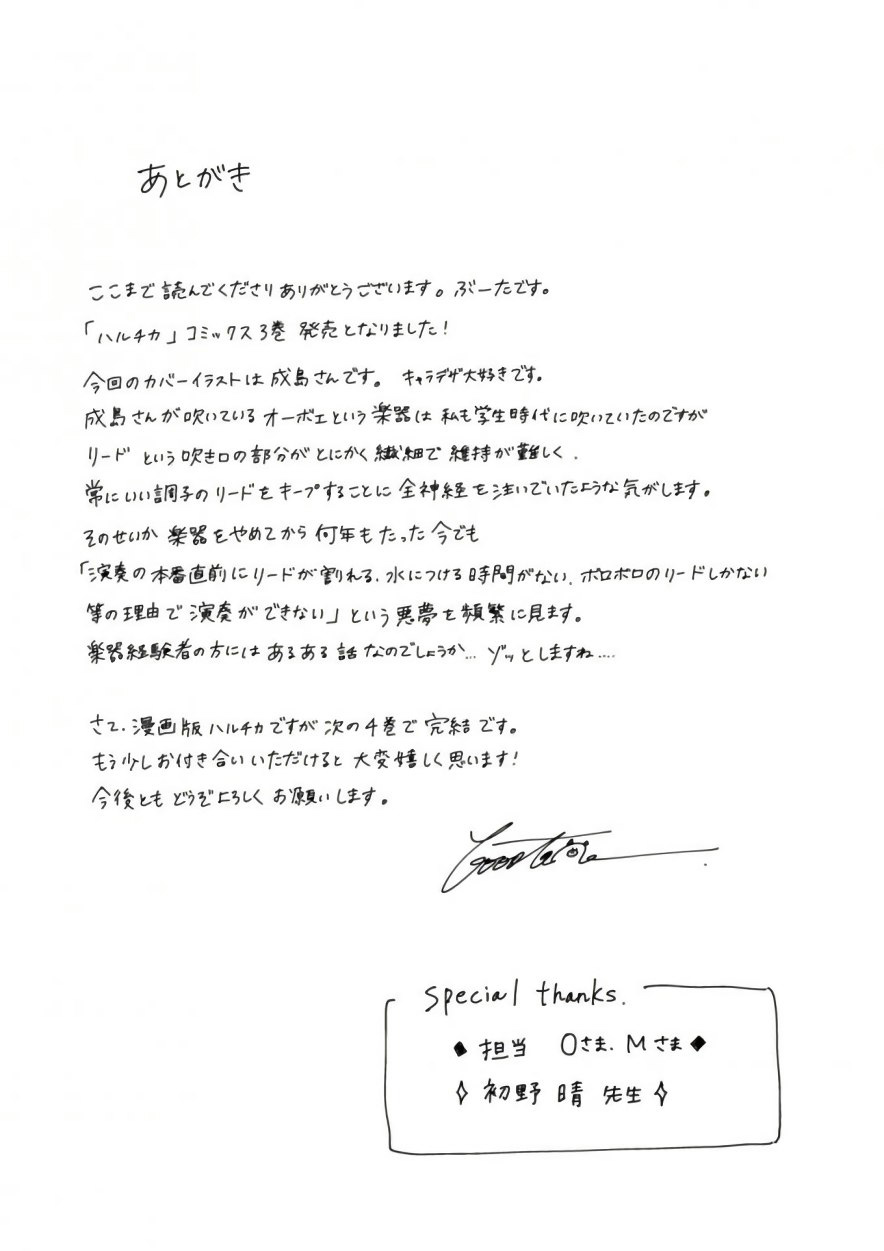 あとがき
ここまで読んでくださりありがとうございます。ぶーたです。
「ハルチカ」コミックス3巻 発売となりました!
今回のカバーイラストは成島さんです。 キャラデザ大好きです。
成島さんが吹いているオーボエという楽器は私も学生時代に吹いていたのですが
リードという吹き口の部分がとにかく繊細で維持が難しく、
常にいい調子のリードをキープすることに全神経を注いでいたような気がします。
そのせいか楽器をやめてから何年もたった今でも
「演奏の本番直前にリードが割れる、水につける時間がない、ボロボロのリードしかない
等の理由で演奏ができない」という悪夢を頻繁に見ます。
楽器経験者の方にはあるある話なのでしょうか… ゾッとしますね….
さて、漫画版ハルチカですが次の4巻で完結です。
もう少しお付き合いいただけると大変嬉しく思います!
今後ともどうぞよろしくお願いします。
special thanks.
◆担当 Oさま、Mさま◆
✧初野 晴 先生✧